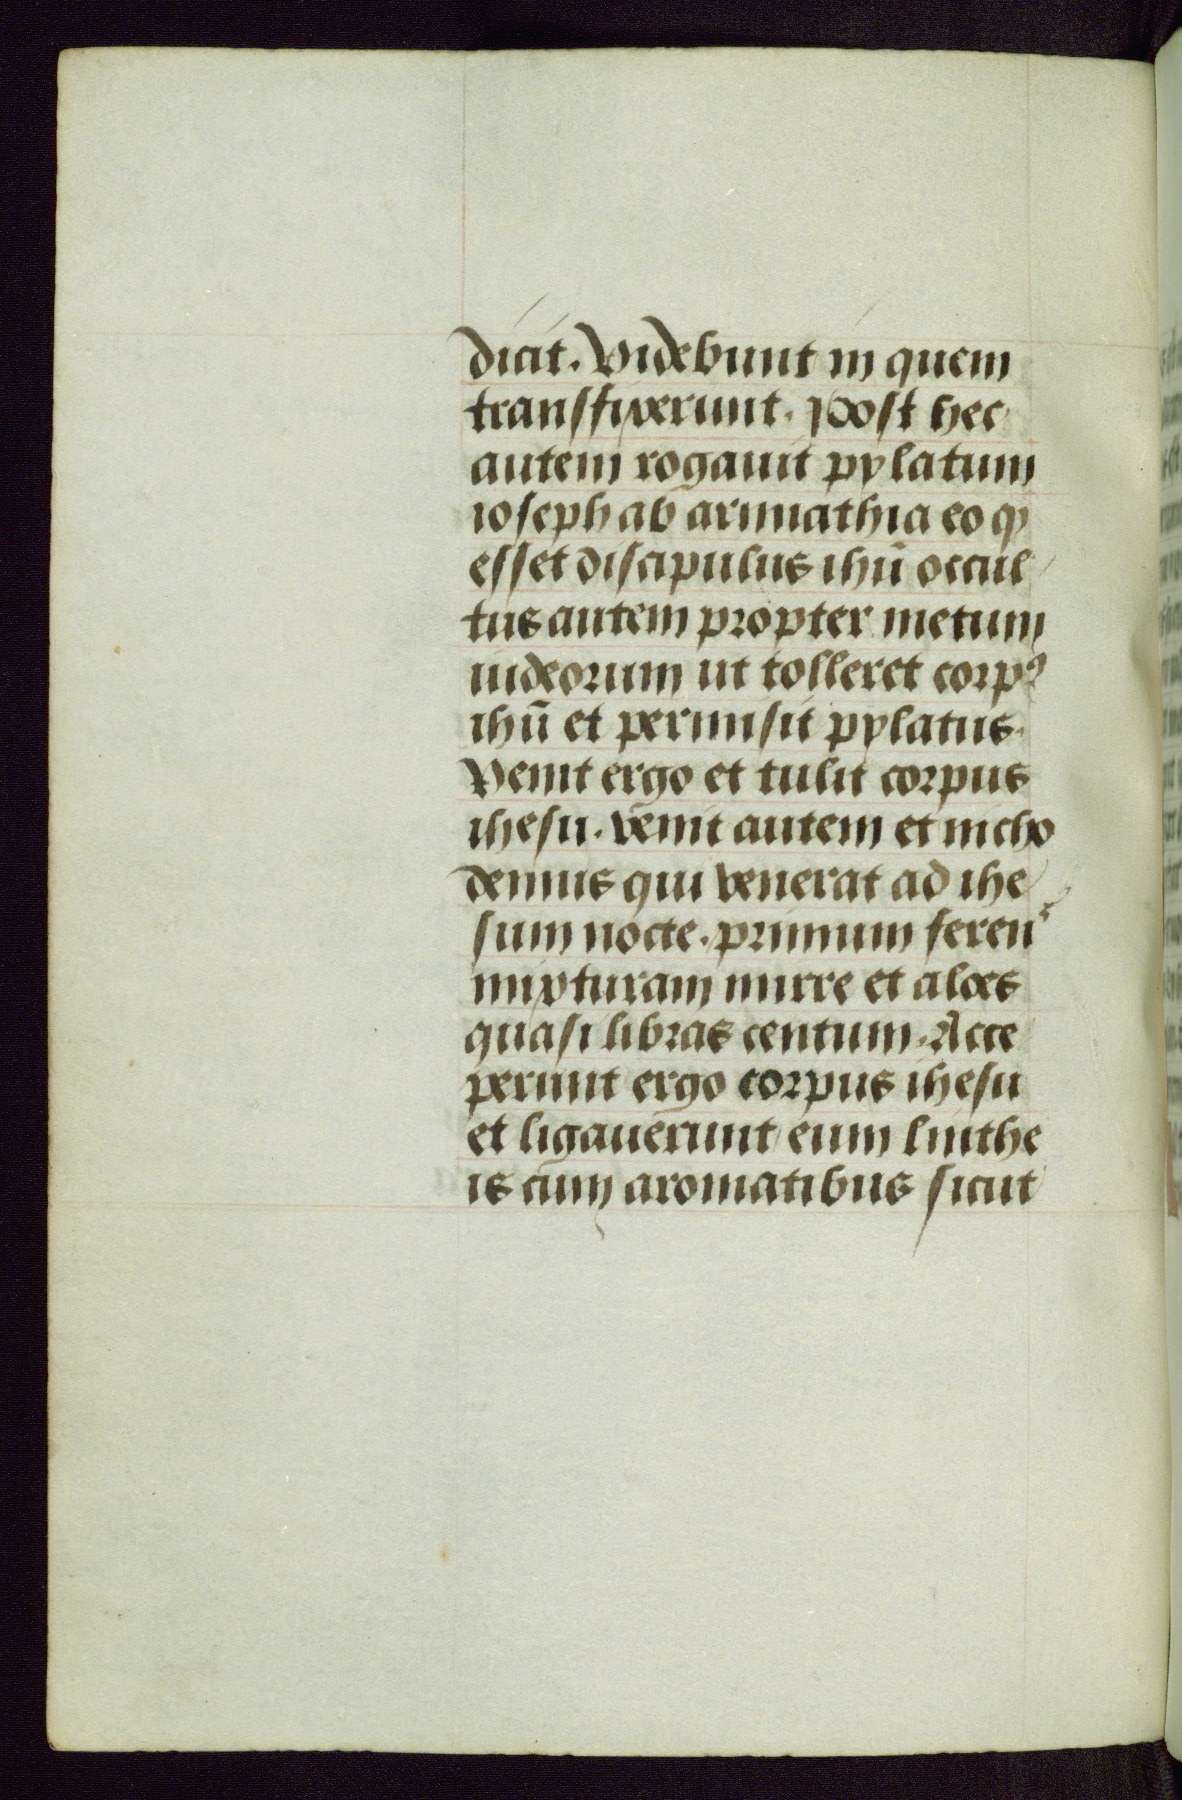 dicit. Videbunt in quem
transfixerunt. Post hec
autem rogauit pylatum
ioseph ab arimathia eo ꝙ
esset discipulus ihū occul
tus autem propter metum
iudeorum ut tolleret corpꝰ
ihū et permisit pylatus.
Venit ergo et tulit corpus
ihesu. venit autem et nicho
demus qui venerat ad ihe
sum nocte. primum feren͛
mixturam mirre et aloes
quasi libras centum. Acce
perunt ergo corpus ihesu
et ligauerunt eum linthe
is cum aromatibus sicut